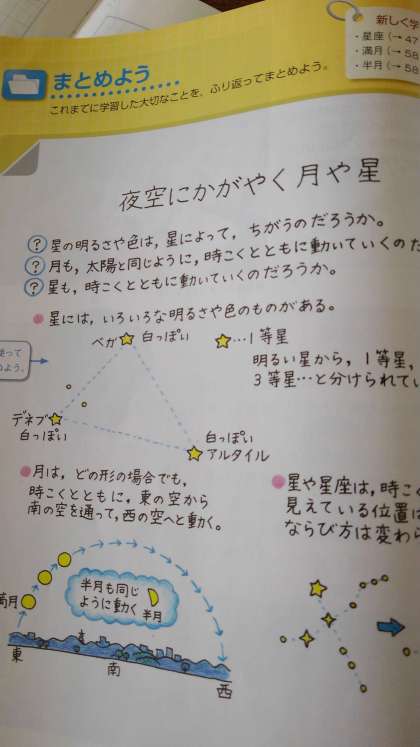 新しく学
・星座(→47
・満月(→58
・半月(→58
まとめよう
これまでに学習した大切なことを、ふり返ってまとめよう。
夜空にかがやく月や星
? 星の明るさや色は,星によって,ちがうのだろうか。
? 月も,太陽と同じように,時こくとともに動いていくのだ
? 星も,時こくとともに動いていくのだろうか。
●星には,いろいろな明るさや色のものがある。
ベガ 白っぽい
…1等星
明るい星から,1等星,
3等星…と分けられてい
使って
めよう。
デネブ
白っぽい
白っぽい
アルタイル
●月は,どの形の場合でも,
時こくとともに,東の空から
南の空を通って,西の空へと動く。
●星や星座は,時こ
見えている位置は
ならび方は変わら
満月
半月も同じ
ように動く 半月
東
南
西